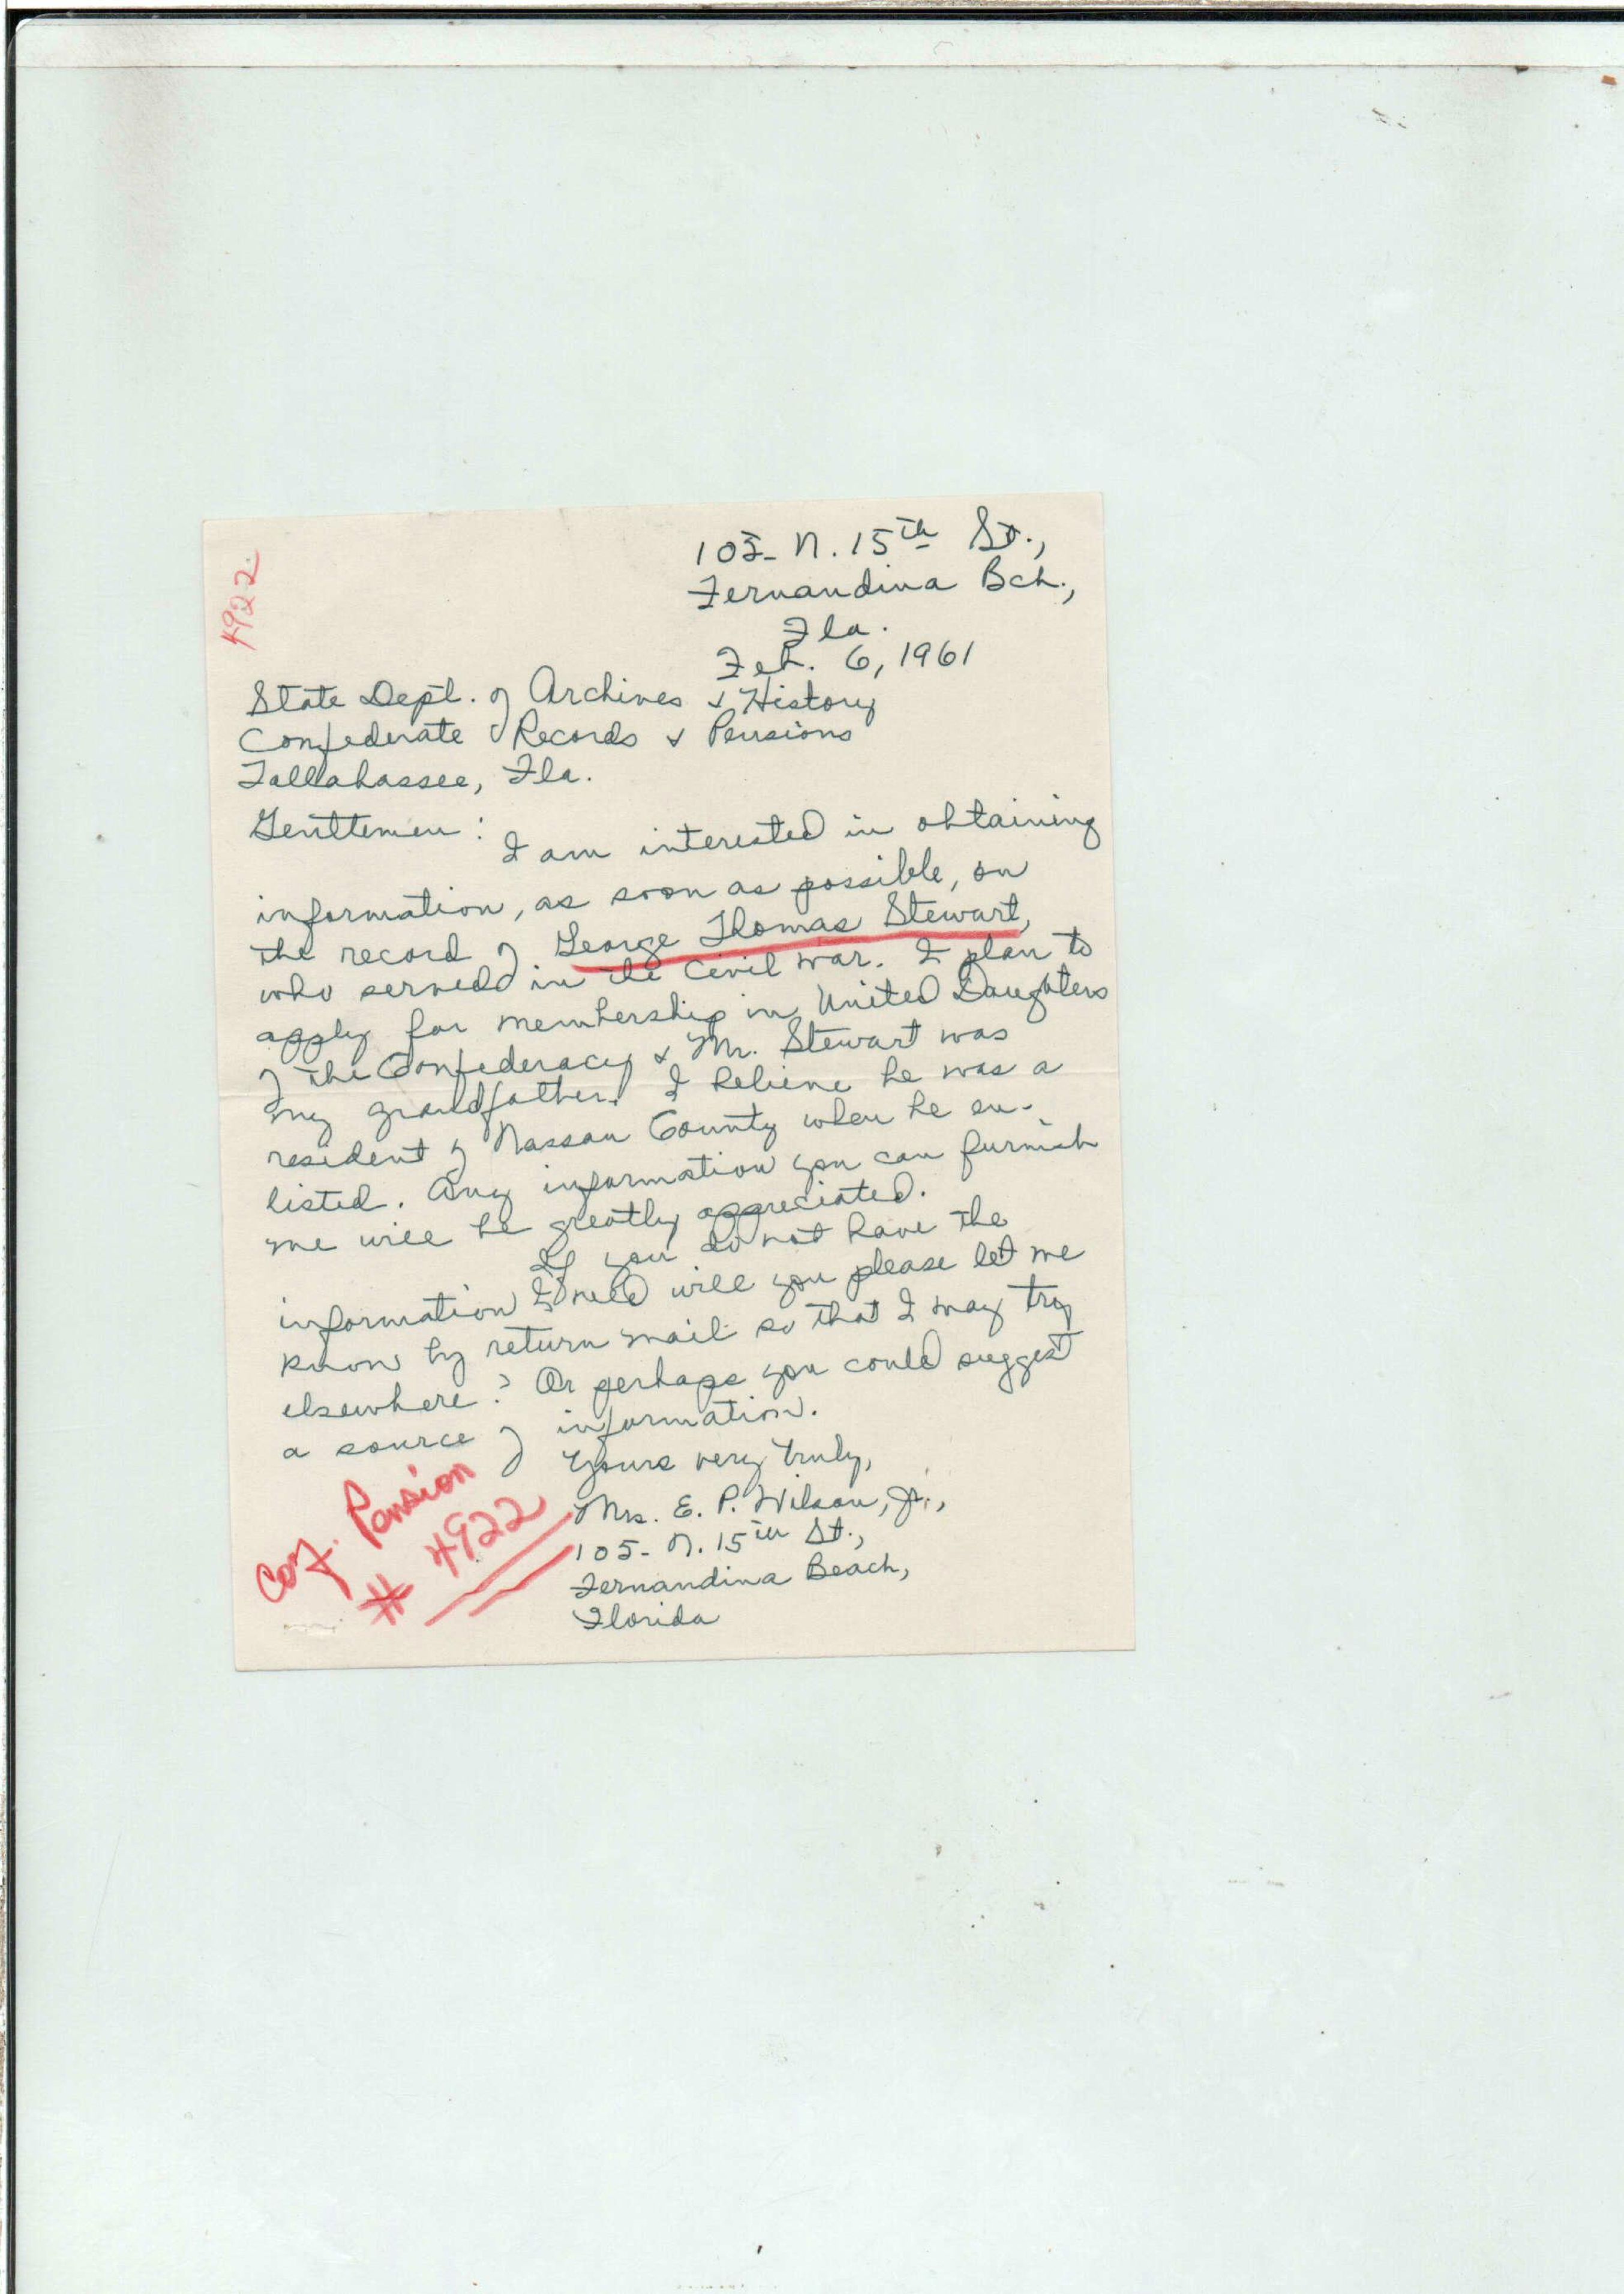 4922
105- N. 15th St.,
Fernandina Bch.,
Fla.
Feb. 6, 1961
State Dept. of Archives & History
Confederate Records & Pensions
Tallahassee, Fla.
Gentlemen:
I am interested in obtaining
information, as soon as possible, on
the record of George Thomas Stewart,
who served in the Civil War. I plan to
apply for membership in United Daughters
of the Confederacy & Mr. Stewart was
my grandfather. I believe he was a
resident of Nassau County when he en-
listed. Any information you can furnish
me will be greatly appreciated.
If you do not have the
information I need will you please let me
know by return mail so that I may try
elsewhere? Or perhaps you could suggest
a source of information.
Yours very truly,
Mrs. E. P. Wilson, Jr.,
105- N. 15th St.,
Fernandina Beach,
Florida
Conf. Pension
# 4922